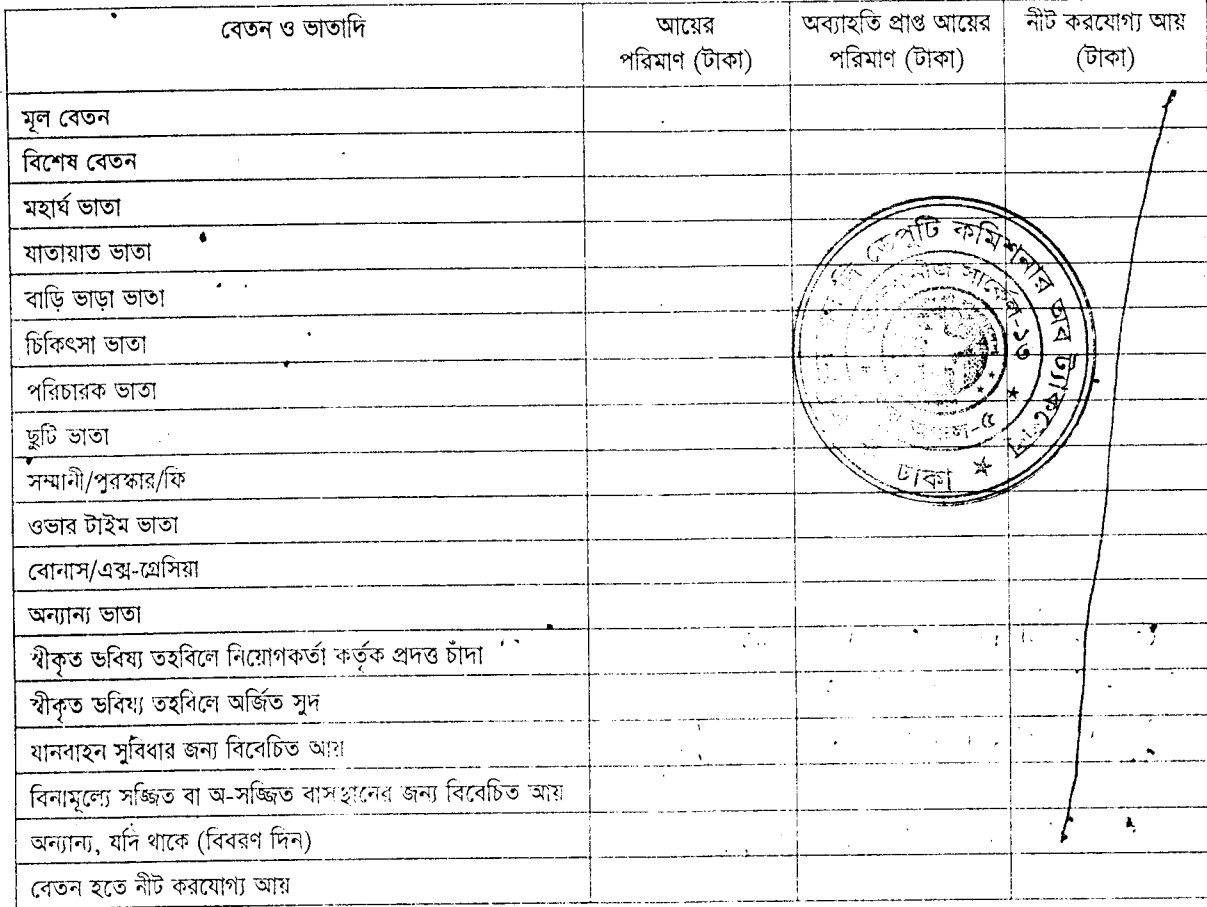 বেতন ও ভাতাদি
আয়ের
পরিমাণ (টাকা)
অব্যাহতি প্রাপ্ত আয়ের
পরিমাণ (টাকা)
নীট করযোগ্য আয়
(টাকা)
মূল বেতন
বিশেষ বেতন
মহার্ঘ ভাতা
যাতায়াত ভাতা
বাড়ি ভাড়া ভাতা
চিকিৎসা ভাতা
পরিচারক ভাতা
ছুটি ভাতা
সম্মানী/পুরস্কার/ফি
ওভার টাইম ভাতা
বোনাস/এক্স-গ্রেসিয়া
অন্যান্য ভাতা
স্বীকৃত ভবিষ্য তহবিলে নিয়োগকর্তা কর্তৃক প্রদত্ত চাঁদা
স্বীকৃত ভবিষ্য তহবিলে অর্জিত সুদ
যানবাহন সুবিধার জন্য বিবেচিত আয়
বিনামূল্যে সজ্জিত বা অ-সজ্জিত বাসস্থানের জন্য বিবেচিত আয়
অন্যান্য, যদি থাকে (বিবরণ দিন)
বেতন হতে নীট করযোগ্য আয়
ডেপুটি কমিশনার অব ট্যাকসেস
সার্কেল-১৩
ঢাকা